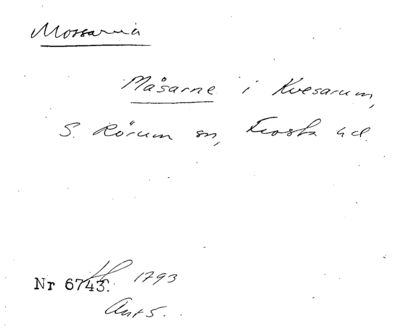 Mossarna
Måsarne i Kvesarum,
S. Rörum sn, Frosta hd.
Nr 6743. 1793
Ant 5.